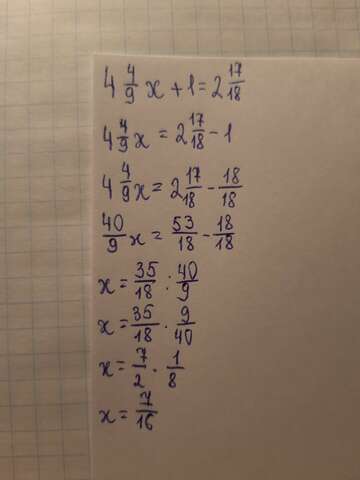 4 4/9 x + 1 = 2 17/18
4 4/9 x = 2 17/18 - 1
4 4/9 x = 2 17/18 - 18/18
40/9 x = 53/18 - 18/18
x = 35/18 : 40/9
x = 35/18 · 9/40
x = 7/2 · 1/8
x = 7/16